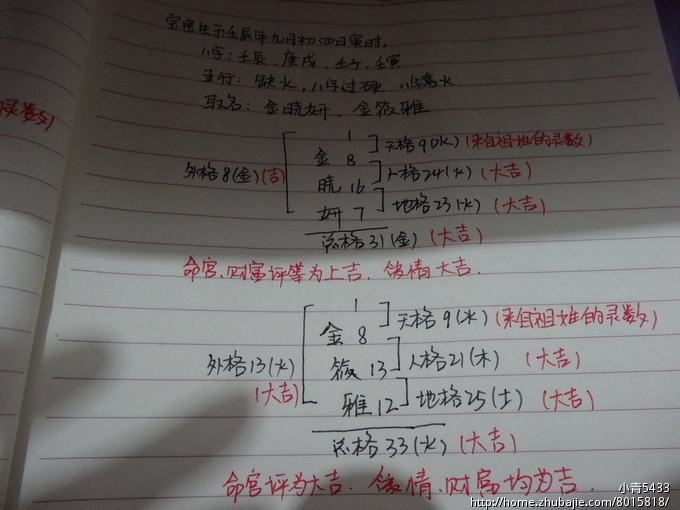 宝宝生于壬辰年九月初四日寅时.
八字: 壬辰、庚戌、壬子、壬寅
五行: 缺火, 八字过硬, 八字喜火.
取名: 金晓妍、金筱雅.
灵数)
1
金 8
晓 16
妍 7
天格9(水) (来自祖姓的灵数)
外格8(金)(吉)
人格24(火) (大吉)
地格23(火) (大吉)
总格31(金) (大吉)
命宫、财富评等为上吉、爱情大吉.
1
金 8
筱 13
雅 12
天格9(水) (来自祖姓的灵数)
外格13(火)
(大吉)
人格21(木) (大吉)
地格25(土) (大吉)
总格33(火) (大吉)
命宫评为大吉、爱情、财富均为吉.
小青5433
http://home.zhubajie.com/8015818/